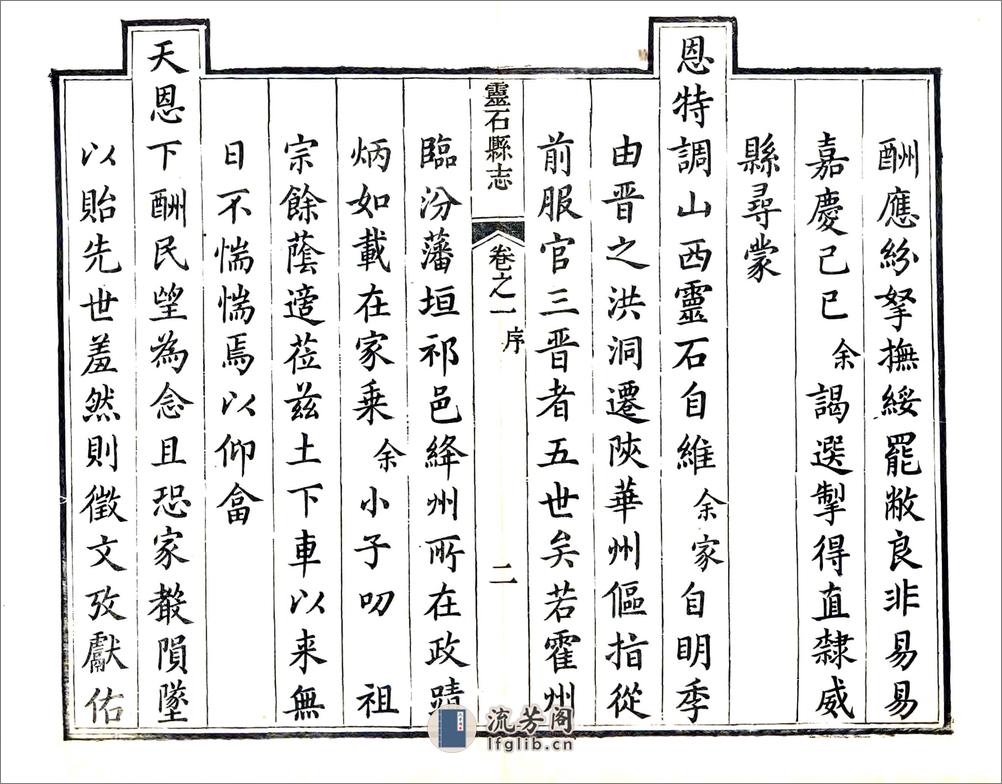 酬應紛拏撫綏罷敝良非易易
嘉慶己巳余謁選掣得直隸威
縣尋蒙
恩特調山西靈石自維余家自明季
由晉之洪洞遷陝華州傴指從
前服官三晉者五世矣若霍州
靈石縣志 卷之一 序 二
臨汾藩垣祁邑絳州所在政蹟
炳如載在家乘余小子叨 祖
宗餘蔭適莅茲土下車以来無
日不惴惴焉以仰畣
天恩下酬民望為念且恐家聲隕墜
以貽先世羞然則徵文攷獻佑
流芳阁
lfglib.cn